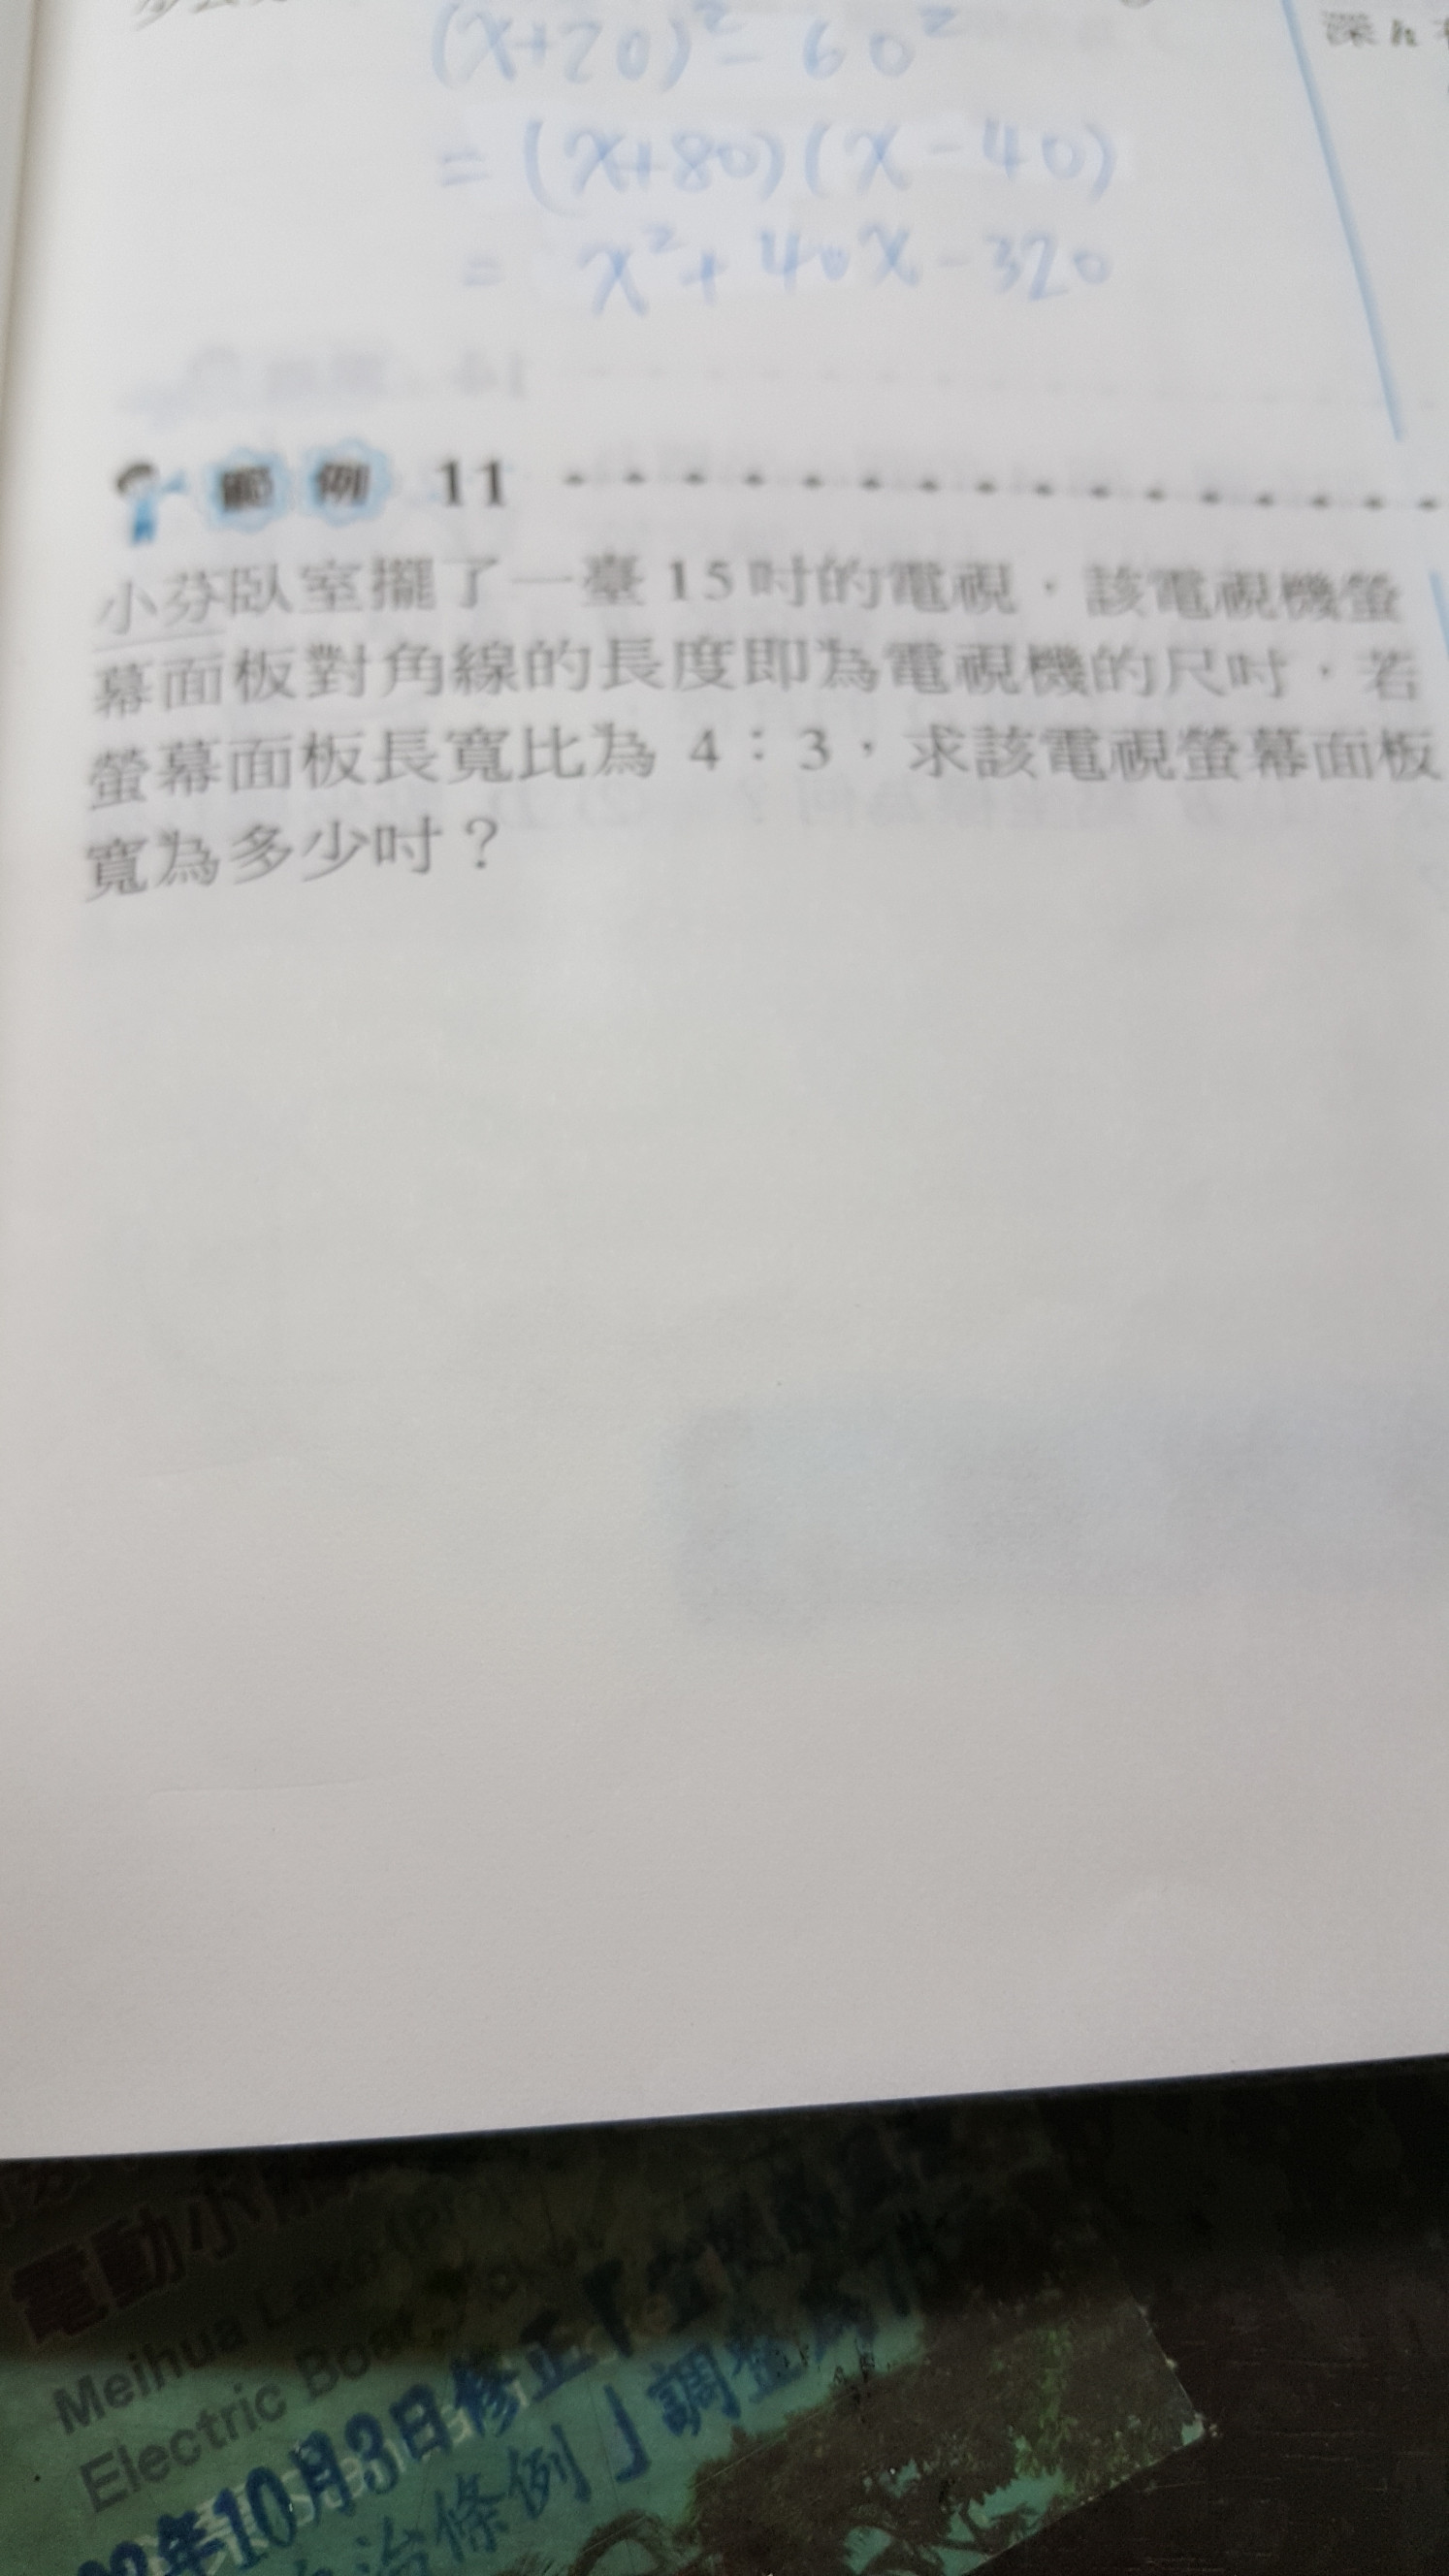 深 h
(x+20)² - 60²
= (x+80)(x-40)
= x²+40x-320
範例 11
小芬臥室擺了一臺 15 吋的電視，該電視機螢
幕面板對角線的長度即為電視機的尺吋，若
螢幕面板長寬比為 4：3，求該電視螢幕面板
寬為多少吋？
電動小
Meihua
Electric Boa
年10月3日修正「
治條例」調整為